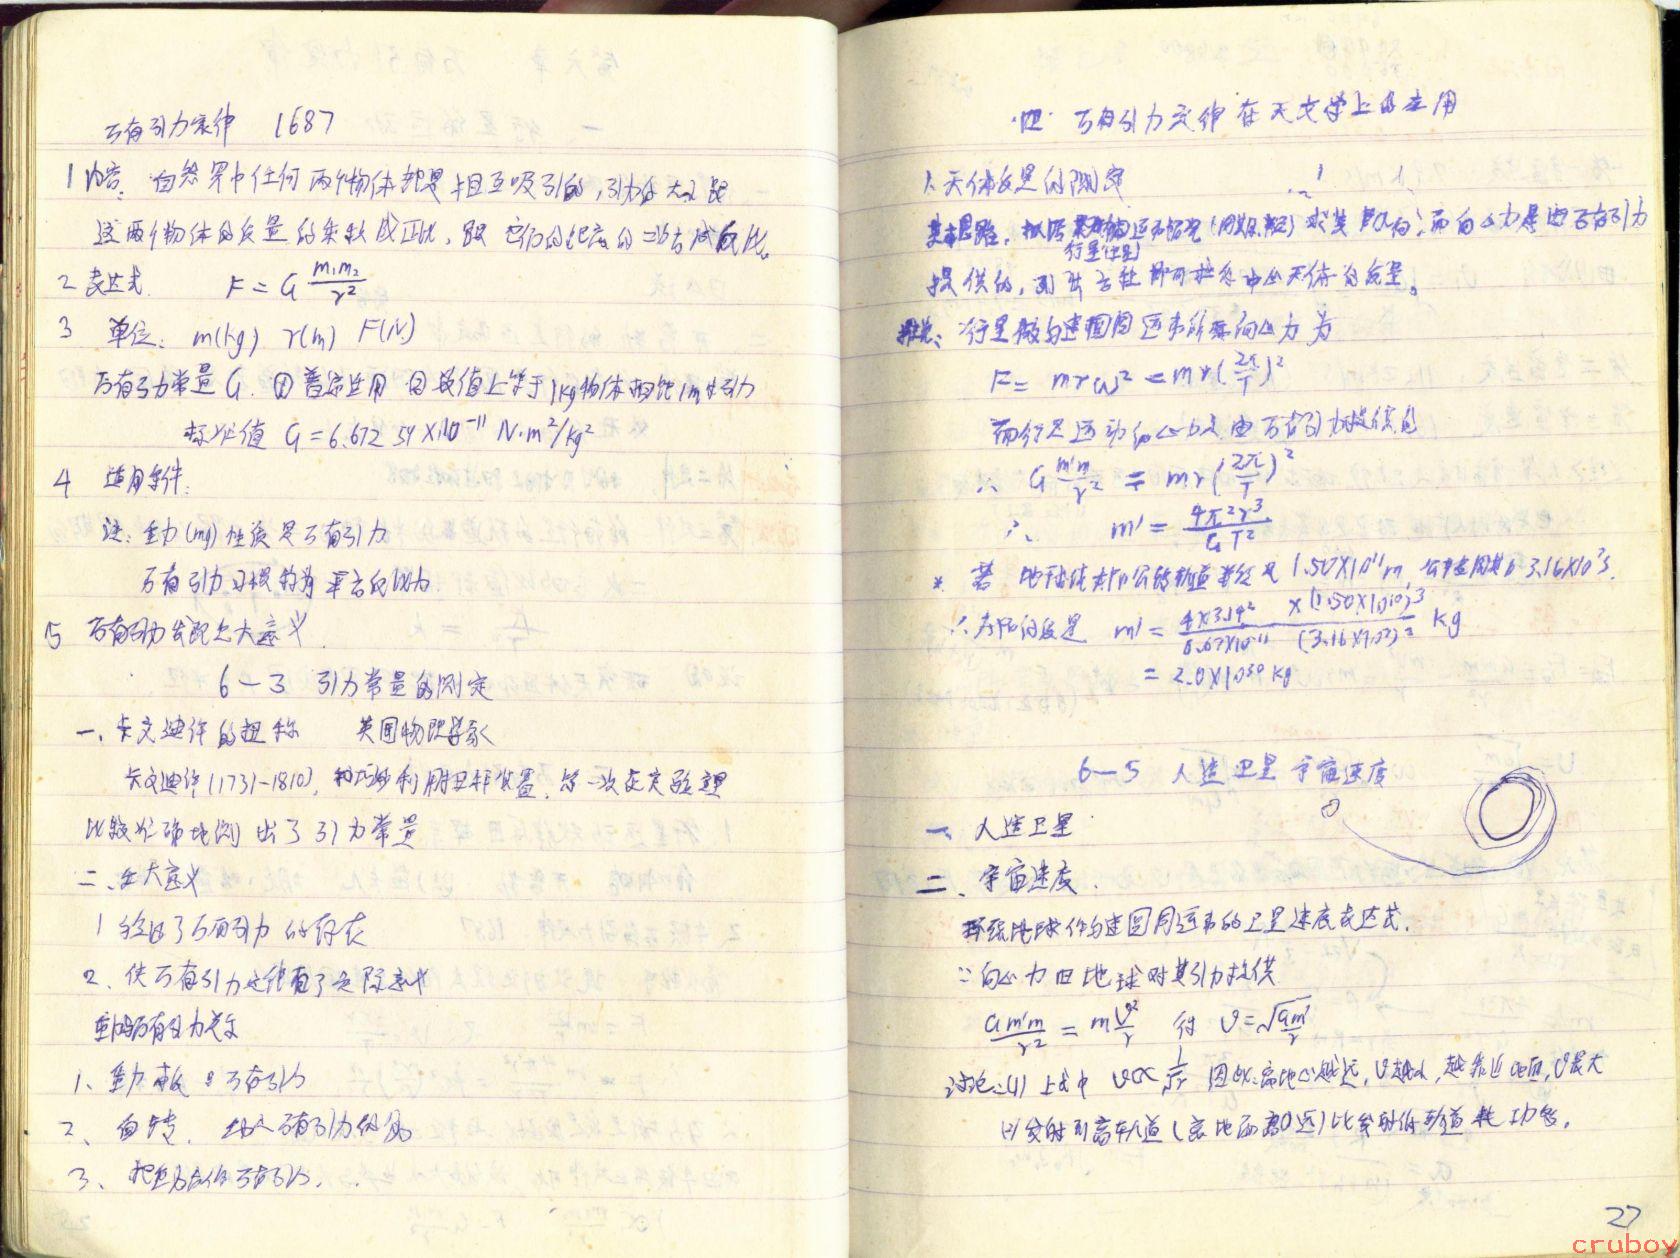 万有引力定律 1687
1 内容: 自然界中任何两个物体都是相互吸引的,引力的大小跟
这两个物体的质量的乘积成正比,跟它们的距离的二次方成反比。
2 表达式. F = G m₁m₂/r²
3 单位: m(kg) r(m) F(N)
万有引力常量G. ①普适适用 ②数值上等于1kg物体相距1m时引力
标准值 G=6.67259×10⁻¹¹ N·m²/kg²
4 适用条件:
注: 重力(mg)性质是万有引力
5 万有引力发现之大意义
6—3 引力常量的测定
一、卡文迪许的扭称 英国物理学家
卡文迪许(1731-1810), 巧妙利用扭秤装置, 第一次在实验里
比较准确地测出了引力常量
二、 大意义
1 了万有引力的存在
2、使万有引力定律有了实际意义
重力与万有引力关系
1、重力 万有引力
2、自转. 万有引力
3、 万有引力
四 万有引力定律在天文学上的应用
1、天体质量的测定
基本思路, 根据 行星(卫星) 运动情况(周期、半径)求其F向; 而向心力是由万有引力
提供的, 列出方程即可推知中心天体的质量。
推导: ∵行星做匀速圆周运动所需向心力为
F = mrω² = mr(2π/T)²
而行星运动向心力是由万有引力提供的
∴ G m'm/r² = mr(2π/T)²
∴ m' = 4π²r³/GT²
* 若地球绕太阳公转轨道半径是1.50×10¹¹m, 公转周期为3.16×10⁷s.
∴太阳的质量 m' = 4×3.14²/6.67×10⁻¹¹ × (1.50×10¹⁰)³/(3.16×10⁷)² kg
= 2.0×10³⁰ kg
6—5 人造卫星 宇宙速度
一、人造卫星
二、宇宙速度.
环绕地球作匀速圆周运动的卫星速度表达式.
∵向心力由地球对其引力提供
Gm'm/r² = mv²/r 得 v=√Gm'/r
讨论:(1) 上式中 v∝1/√r 因此:离地心越远, v越小, 越靠近地面, v最大
发射到高轨道(离地面高0远)比发射低轨道耗功多.
27
cruboy